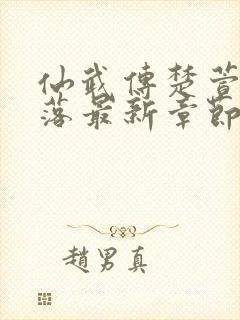 仙武傳楚萱
落最新章節
趙男真